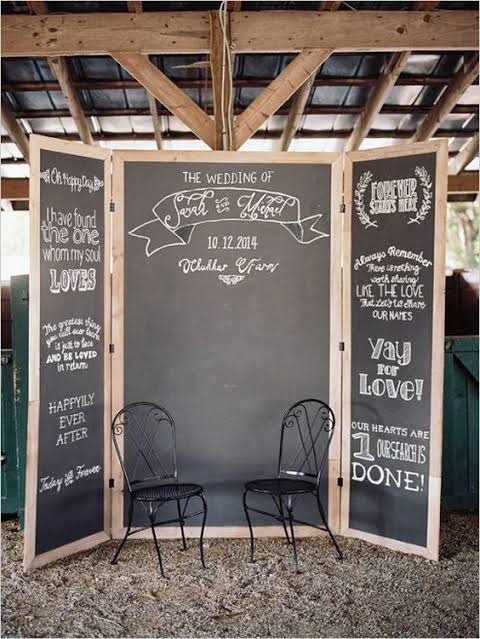 Oh Happy Day
I have found
the one
whom my soul
LOVES
The greatest thing
you will ever learn
is just to love
AND BE LOVED
in return
HAPPILY
EVER
AFTER
Today and Forever
THE WEDDING OF
Sarah AND Michael
10.12.2014
Chukkar Farm
FOREVER
STARTS HERE
Always Remember
There is nothing
worth sharing
LIKE THE LOVE
That Let's Us Share
OUR NAMES
YAY
FOR
LOVE!
OUR HEARTS ARE
1 OUR SEARCH IS
DONE!